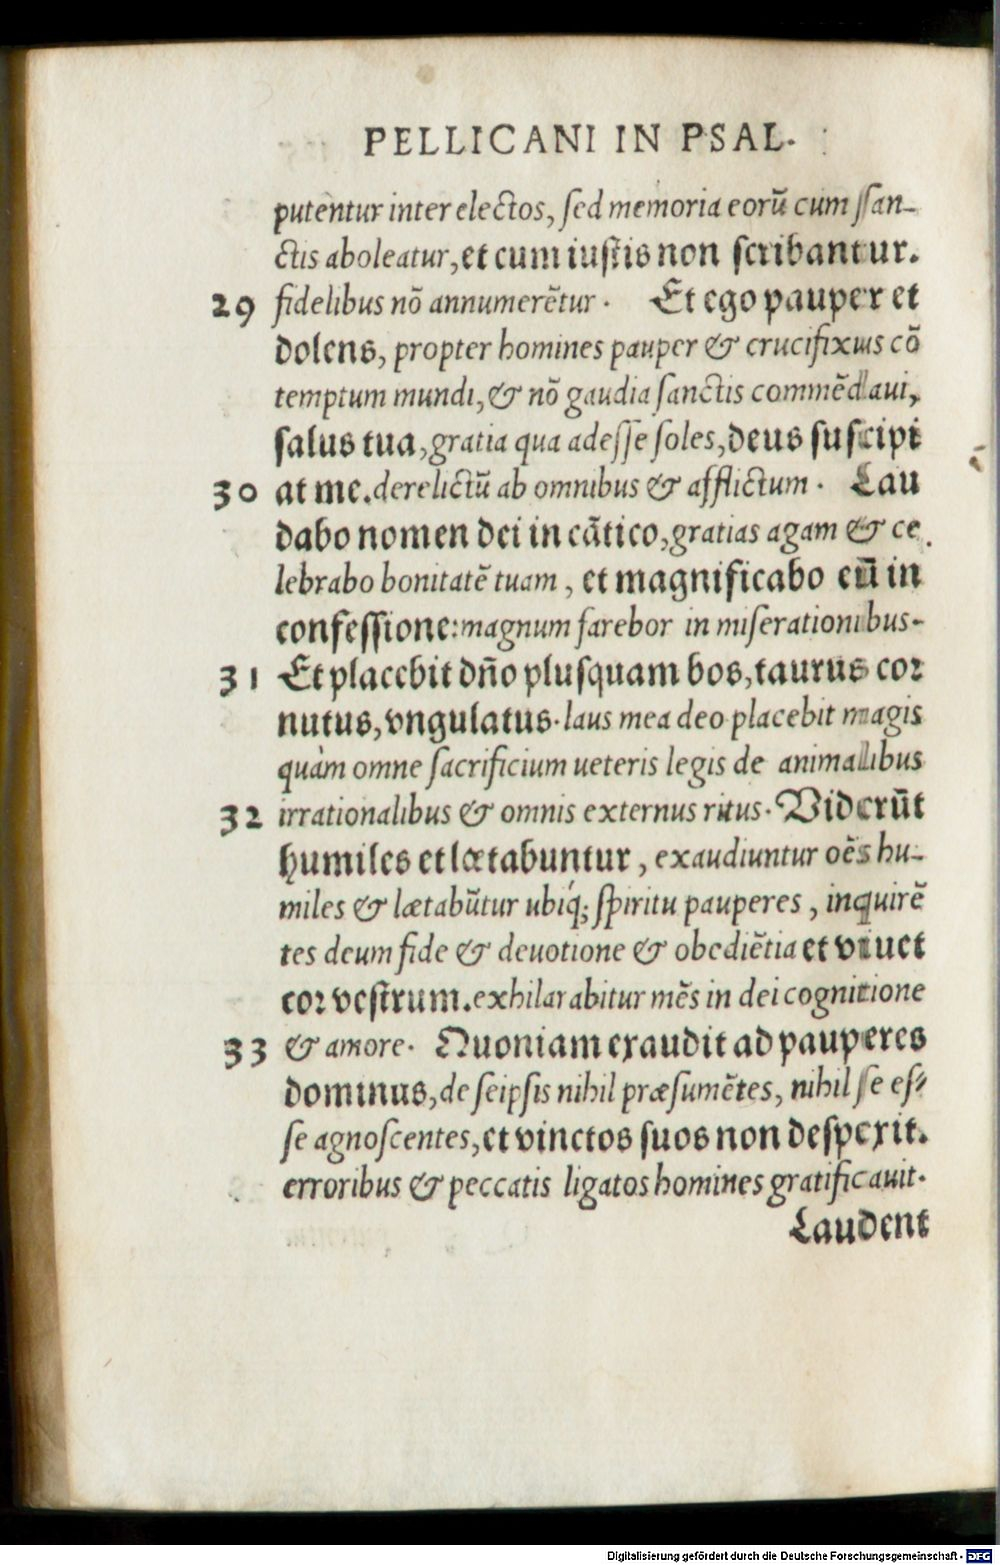 PELLICANI IN PSAL.
putentur inter electos, sed memoria eorũ cum san-
ctis aboleatur, et cum iustis non scribantur.
29 fidelibus nõ annumerẽtur. Et ego pauper et
dolens, propter homines pauper & crucifixus cõ
temptum mundi, & nõ gaudia sanctis commẽdaui,
salus tua, gratia qua adesse soles, deus suscipi
30 at me. derelictũ ab omnibus & afflictum. Lau
dabo nomen dei in cãtico, gratias agam & ce
lebrabo bonitatẽ tuam, et magnificabo eũ in
confessione: magnum farebor in miserationibus.
31 Et placebit dño plusquam bos, taurus cor
nutus, vngulatus. laus mea deo placebit magis
quàm omne sacrificium ueteris legis de animalibus
32 irrationalibus & omnis externus ritus. Viderũt
humiles et lætabuntur, exaudiuntur oẽs hu-
miles & lætabũtur ubiq́; spiritu pauperes, inquirẽ
tes deum fide & deuotione & obediẽtia et viuet
cor vestrum. exhilarabitur mẽs in dei cognitione
33 & amore. Quoniam exaudit ad pauperes
dominus, de seipsis nihil præsumẽtes, nihil se es-
se agnoscentes, et vinctos suos non despexit.
erroribus & peccatis ligatos homines gratificauit.
Laudent
Digitalisierung gefördert durch die Deutsche Forschungsgemeinschaft - DFG